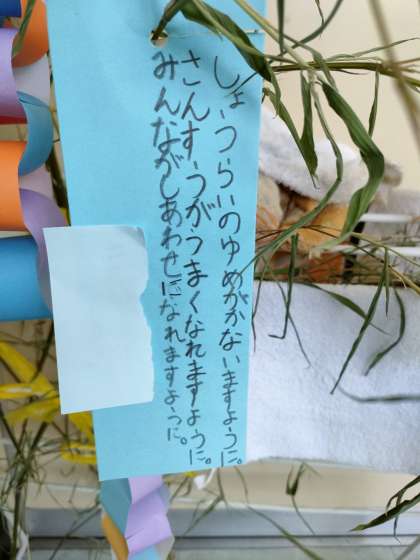 しょうらいのゆめがかないますように。
さんすうがうまくなれますように。
みんながしあわせになれますように。